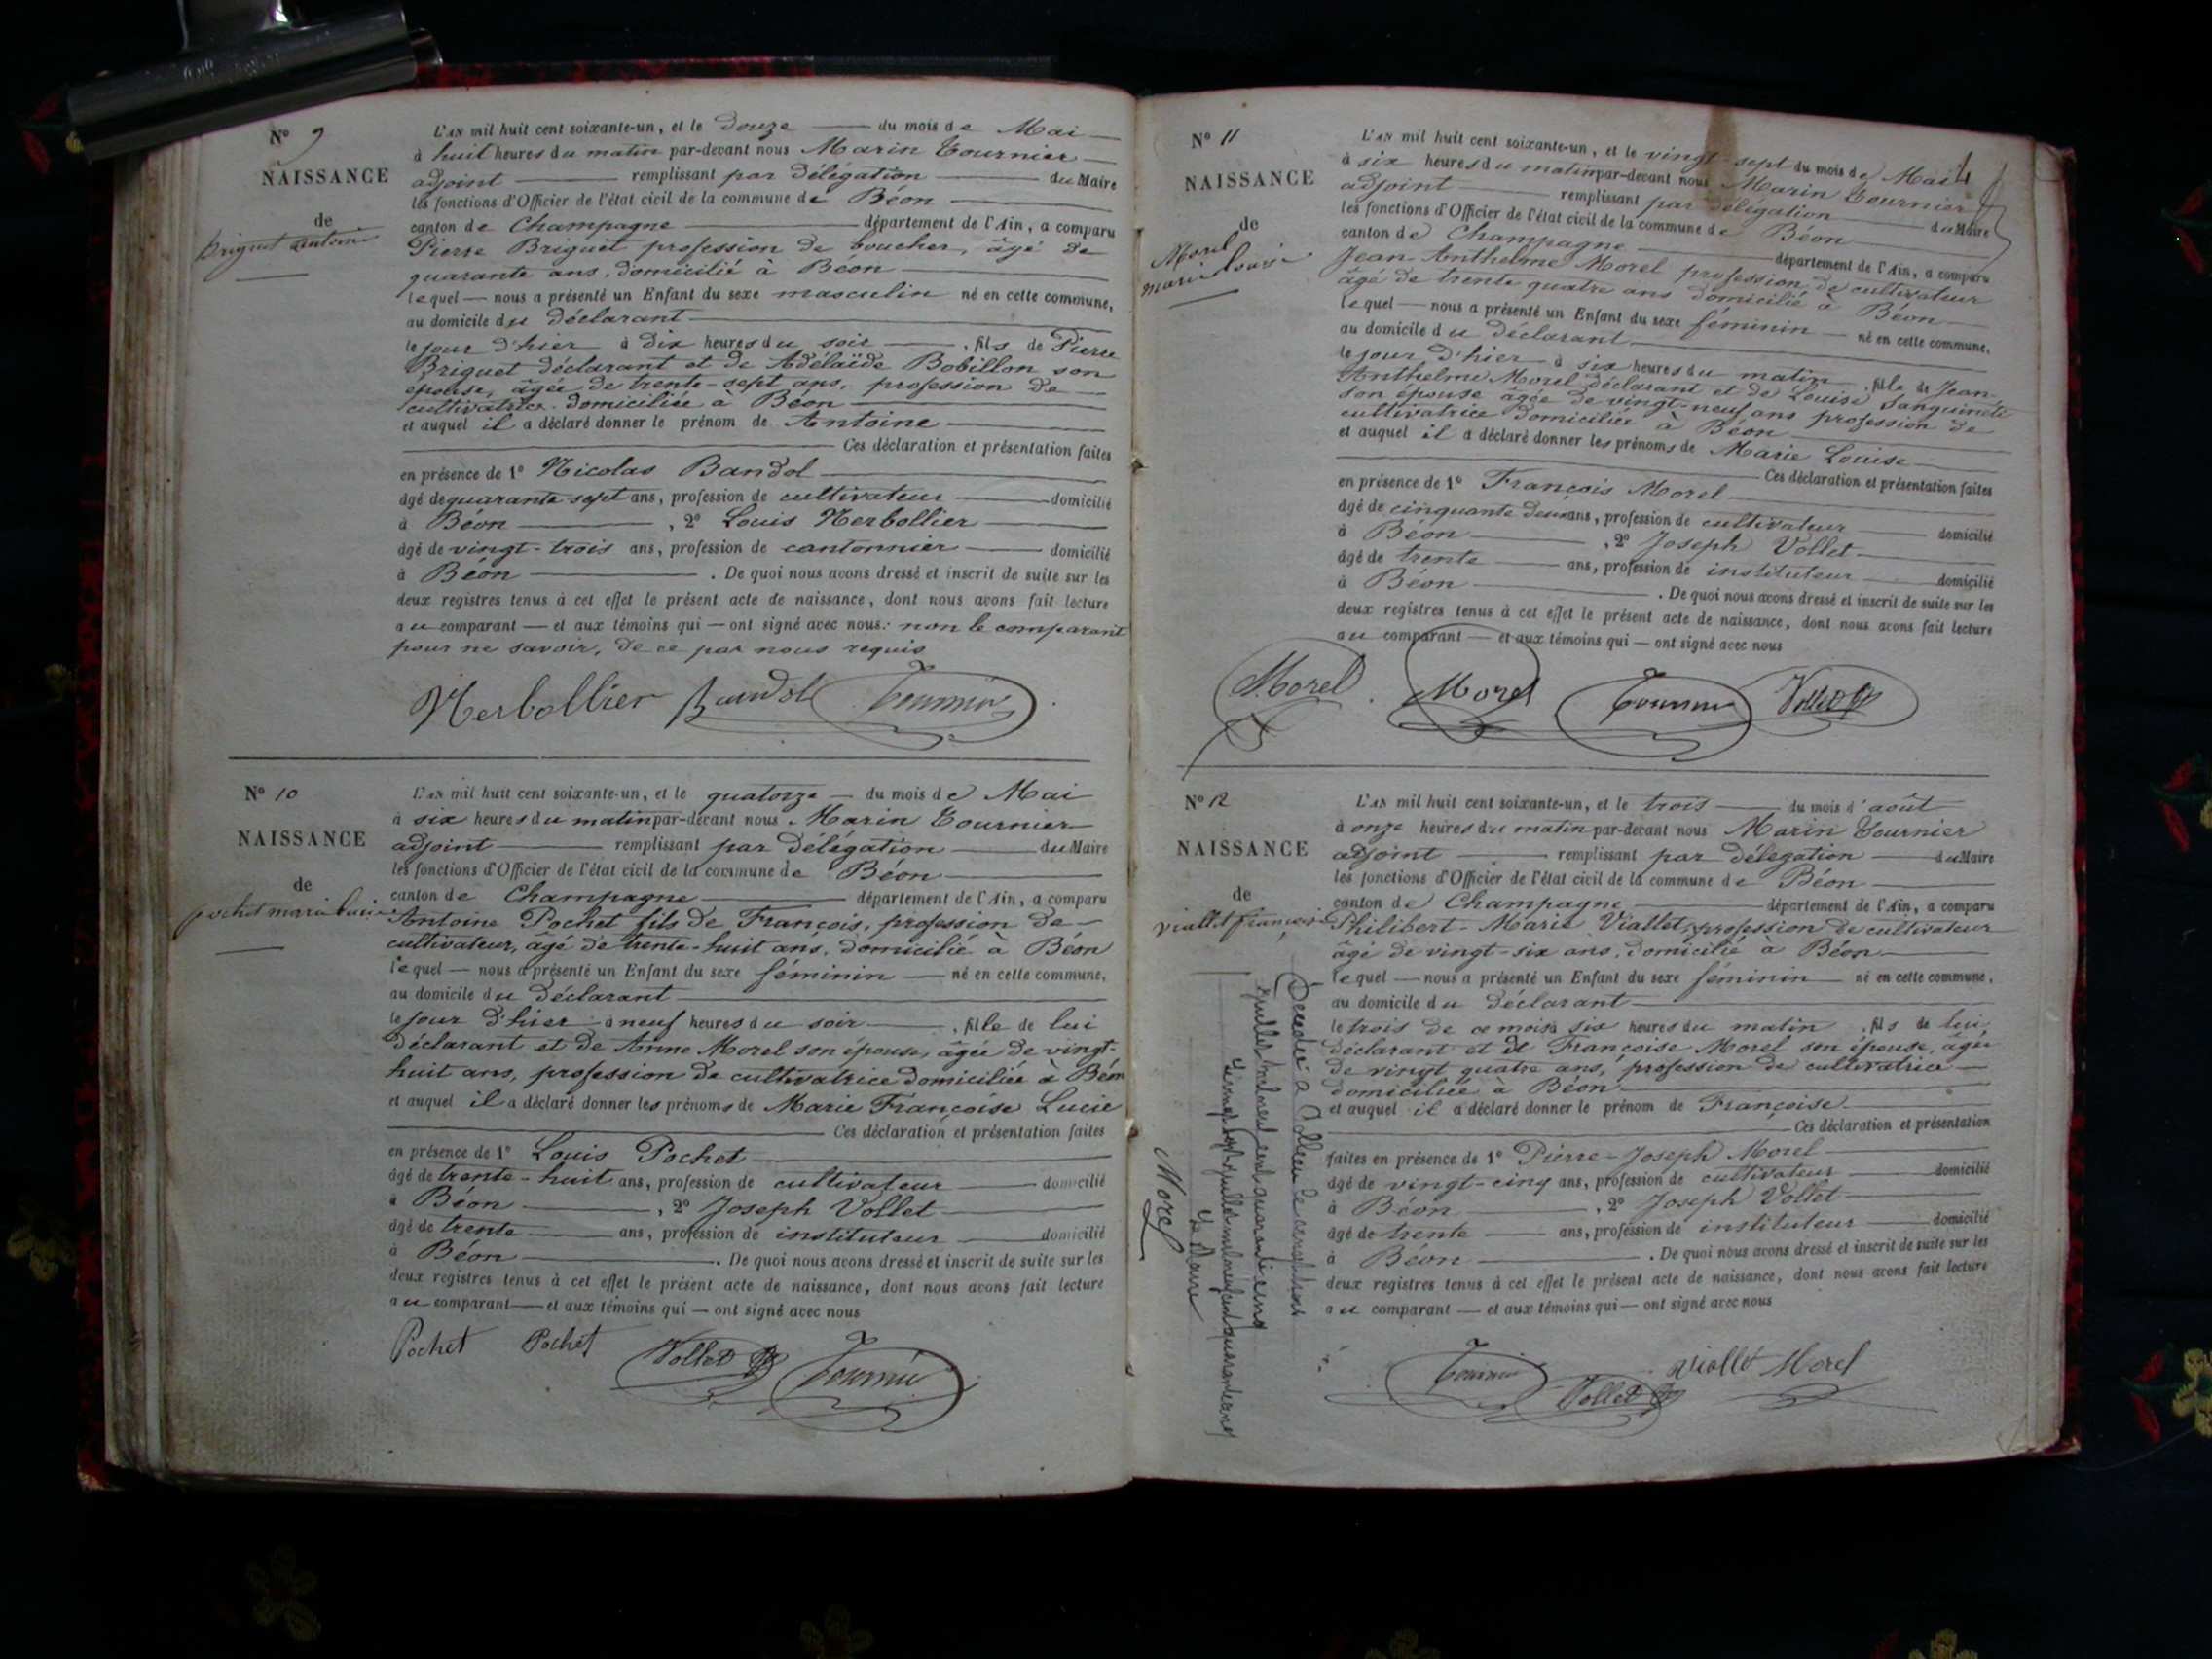 N° 9
NAISSANCE
de
Briguet Antoine
L'AN mil huit cent soixante-un, et le douze du mois de Mai
à huit heures du matin par-devant nous Marin Tournier
adjoint remplissant par délégation du Maire
les fonctions d'Officier de l'état civil de la commune de Béon
canton de Champagne département de l'Ain, a comparu
Pierre Briguet profession de boucher, âgé de
quarante ans, domicilié à Béon
lequel nous a présenté un Enfant du sexe masculin né en cette commune,
au domicile du déclarant
le jour d'hier à dix heures du soir, fils de Pierre
Briguet déclarant et de Adélaïde Bobillon son
épouse, âgée de trente-sept ans, profession de
cultivatrice domiciliée à Béon
et auquel il a déclaré donner le prénom de Antoine
Ces déclaration et présentation faites
en présence de 1° Nicolas Bandol
âgé de quarante sept ans, profession de cultivateur domicilié
à Béon, 2° Louis Herbollier
âgé de vingt-trois ans, profession de cantonnier domicilié
à Béon. De quoi nous avons dressé et inscrit de suite sur les
deux registres tenus à cet effet le présent acte de naissance, dont nous avons fait lecture
au comparant et aux témoins qui ont signé avec nous. non le comparant
pour ne savoir, de ce par nous requis
Herbollier Bandol Tournier
N° 10
NAISSANCE
de
pochet marie lucie
L'AN mil huit cent soixante-un, et le quatorze du mois de Mai
à six heures du matin par-devant nous Marin Tournier
adjoint remplissant par délégation du Maire
les fonctions d'Officier de l'état civil de la commune de Béon
canton de Champagne département de l'Ain, a comparu
Antoine Pochet fils de François, profession de
cultivateur, âgé de trente-huit ans, domicilié à Béon
lequel nous a présenté un Enfant du sexe féminin né en cette commune,
au domicile du déclarant
le jour d'hier à neuf heures du soir, fille de lui
déclarant et de Anne Morel son épouse, âgée de vingt-
huit ans, profession de cultivatrice domiciliée à Béon
et auquel il a déclaré donner les prénoms de Marie Françoise Lucie
Ces déclaration et présentation faites
en présence de 1° Louis Pochet
âgé de trente-huit ans, profession de cultivateur domicilié
à Béon, 2° Joseph Vollet
âgé de trente ans, profession de instituteur domicilié
à Béon. De quoi nous avons dressé et inscrit de suite sur les
deux registres tenus à cet effet le présent acte de naissance, dont nous avons fait lecture
au comparant et aux témoins qui ont signé avec nous
Pochet Pochet Vollet Tournier
N° 11
NAISSANCE
de
Morel
marie louise
L'AN mil huit cent soixante-un, et le vingt-sept du mois de Mai
à six heures du matin par-devant nous Marin Tournier
adjoint remplissant par délégation du Maire
les fonctions d'Officier de l'état civil de la commune de Béon
canton de Champagne département de l'Ain, a comparu
Jean-Anthelme Morel profession de cultivateur
âgé de trente quatre ans domicilié à Béon
lequel nous a présenté un Enfant du sexe féminin né en cette commune,
au domicile du déclarant
le jour d'hier à six heures du matin, fille de Jean-
Anthelme Morel déclarant et de Louise Sanguinète
son épouse âgée de vingt-neuf ans profession de
cultivatrice domiciliée à Béon
et auquel il a déclaré donner les prénoms de Marie Louise
Ces déclaration et présentation faites
en présence de 1° François Morel
âgé de cinquante deux ans, profession de cultivateur domicilié
à Béon, 2° Joseph Vollet
âgé de trente ans, profession de instituteur domicilié
à Béon. De quoi nous avons dressé et inscrit de suite sur les
deux registres tenus à cet effet le présent acte de naissance, dont nous avons fait lecture
au comparant et aux témoins qui ont signé avec nous
Morel Morel Tournier Vollet
N° 12
NAISSANCE
de
viallet françoise
L'AN mil huit cent soixante-un, et le trois du mois d'août
à onze heures du matin par-devant nous Marin Tournier
adjoint remplissant par délégation du Maire
les fonctions d'Officier de l'état civil de la commune de Béon
canton de Champagne département de l'Ain, a comparu
Philibert-Marie Viallet, profession de cultivateur
âgé de vingt-six ans, domicilié à Béon
lequel nous a présenté un Enfant du sexe féminin né en cette commune,
au domicile du déclarant
le trois de ce mois à six heures du matin, fils de lui
déclarant et de Françoise Morel son épouse, âgée
de vingt quatre ans, profession de cultivatrice
domiciliée à Béon
et auquel il a déclaré donner le prénom de Françoise
Ces déclaration et présentation
faites en présence de 1° Pierre-Joseph Morel
âgé de vingt-cinq ans, profession de cultivateur domicilié
à Béon, 2° Joseph Vollet
âgé de trente ans, profession de instituteur domicilié
à Béon. De quoi nous avons dressé et inscrit de suite sur les
deux registres tenus à cet effet le présent acte de naissance, dont nous avons fait lecture
au comparant et aux témoins qui ont signé avec nous
Tournier Vollet Viallet Morel
Décédée à le
juillet mil neuf cent quarante cinq
sept juillet mil neuf cent quarante cinq
Le Maire
Morel